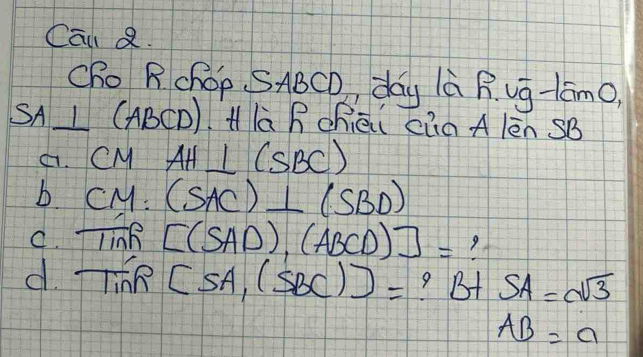 Câu 2.
Cho h. chóp SABCD, đáy là h. vg tâm O,
SA ⊥ (ABCD). H là h chiếu của A lên SB
a. CM AH ⊥ (SBC)
b. CM: (SAC) ⊥ (SBD)
c. Tính [(SAD), (ABCD)] = ?
d. Tính [SA, (SBC)] = ? Bt SA = a√3
AB = a